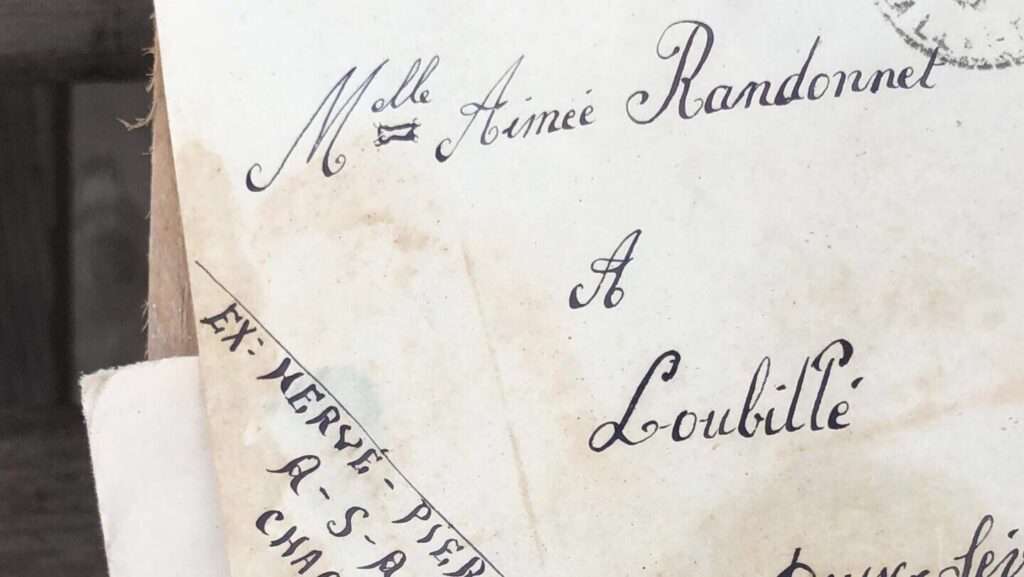 Melle Aimée Randonnet
A
Loubillé
EX: HERVÉ - PIER
A - S - A
CHA